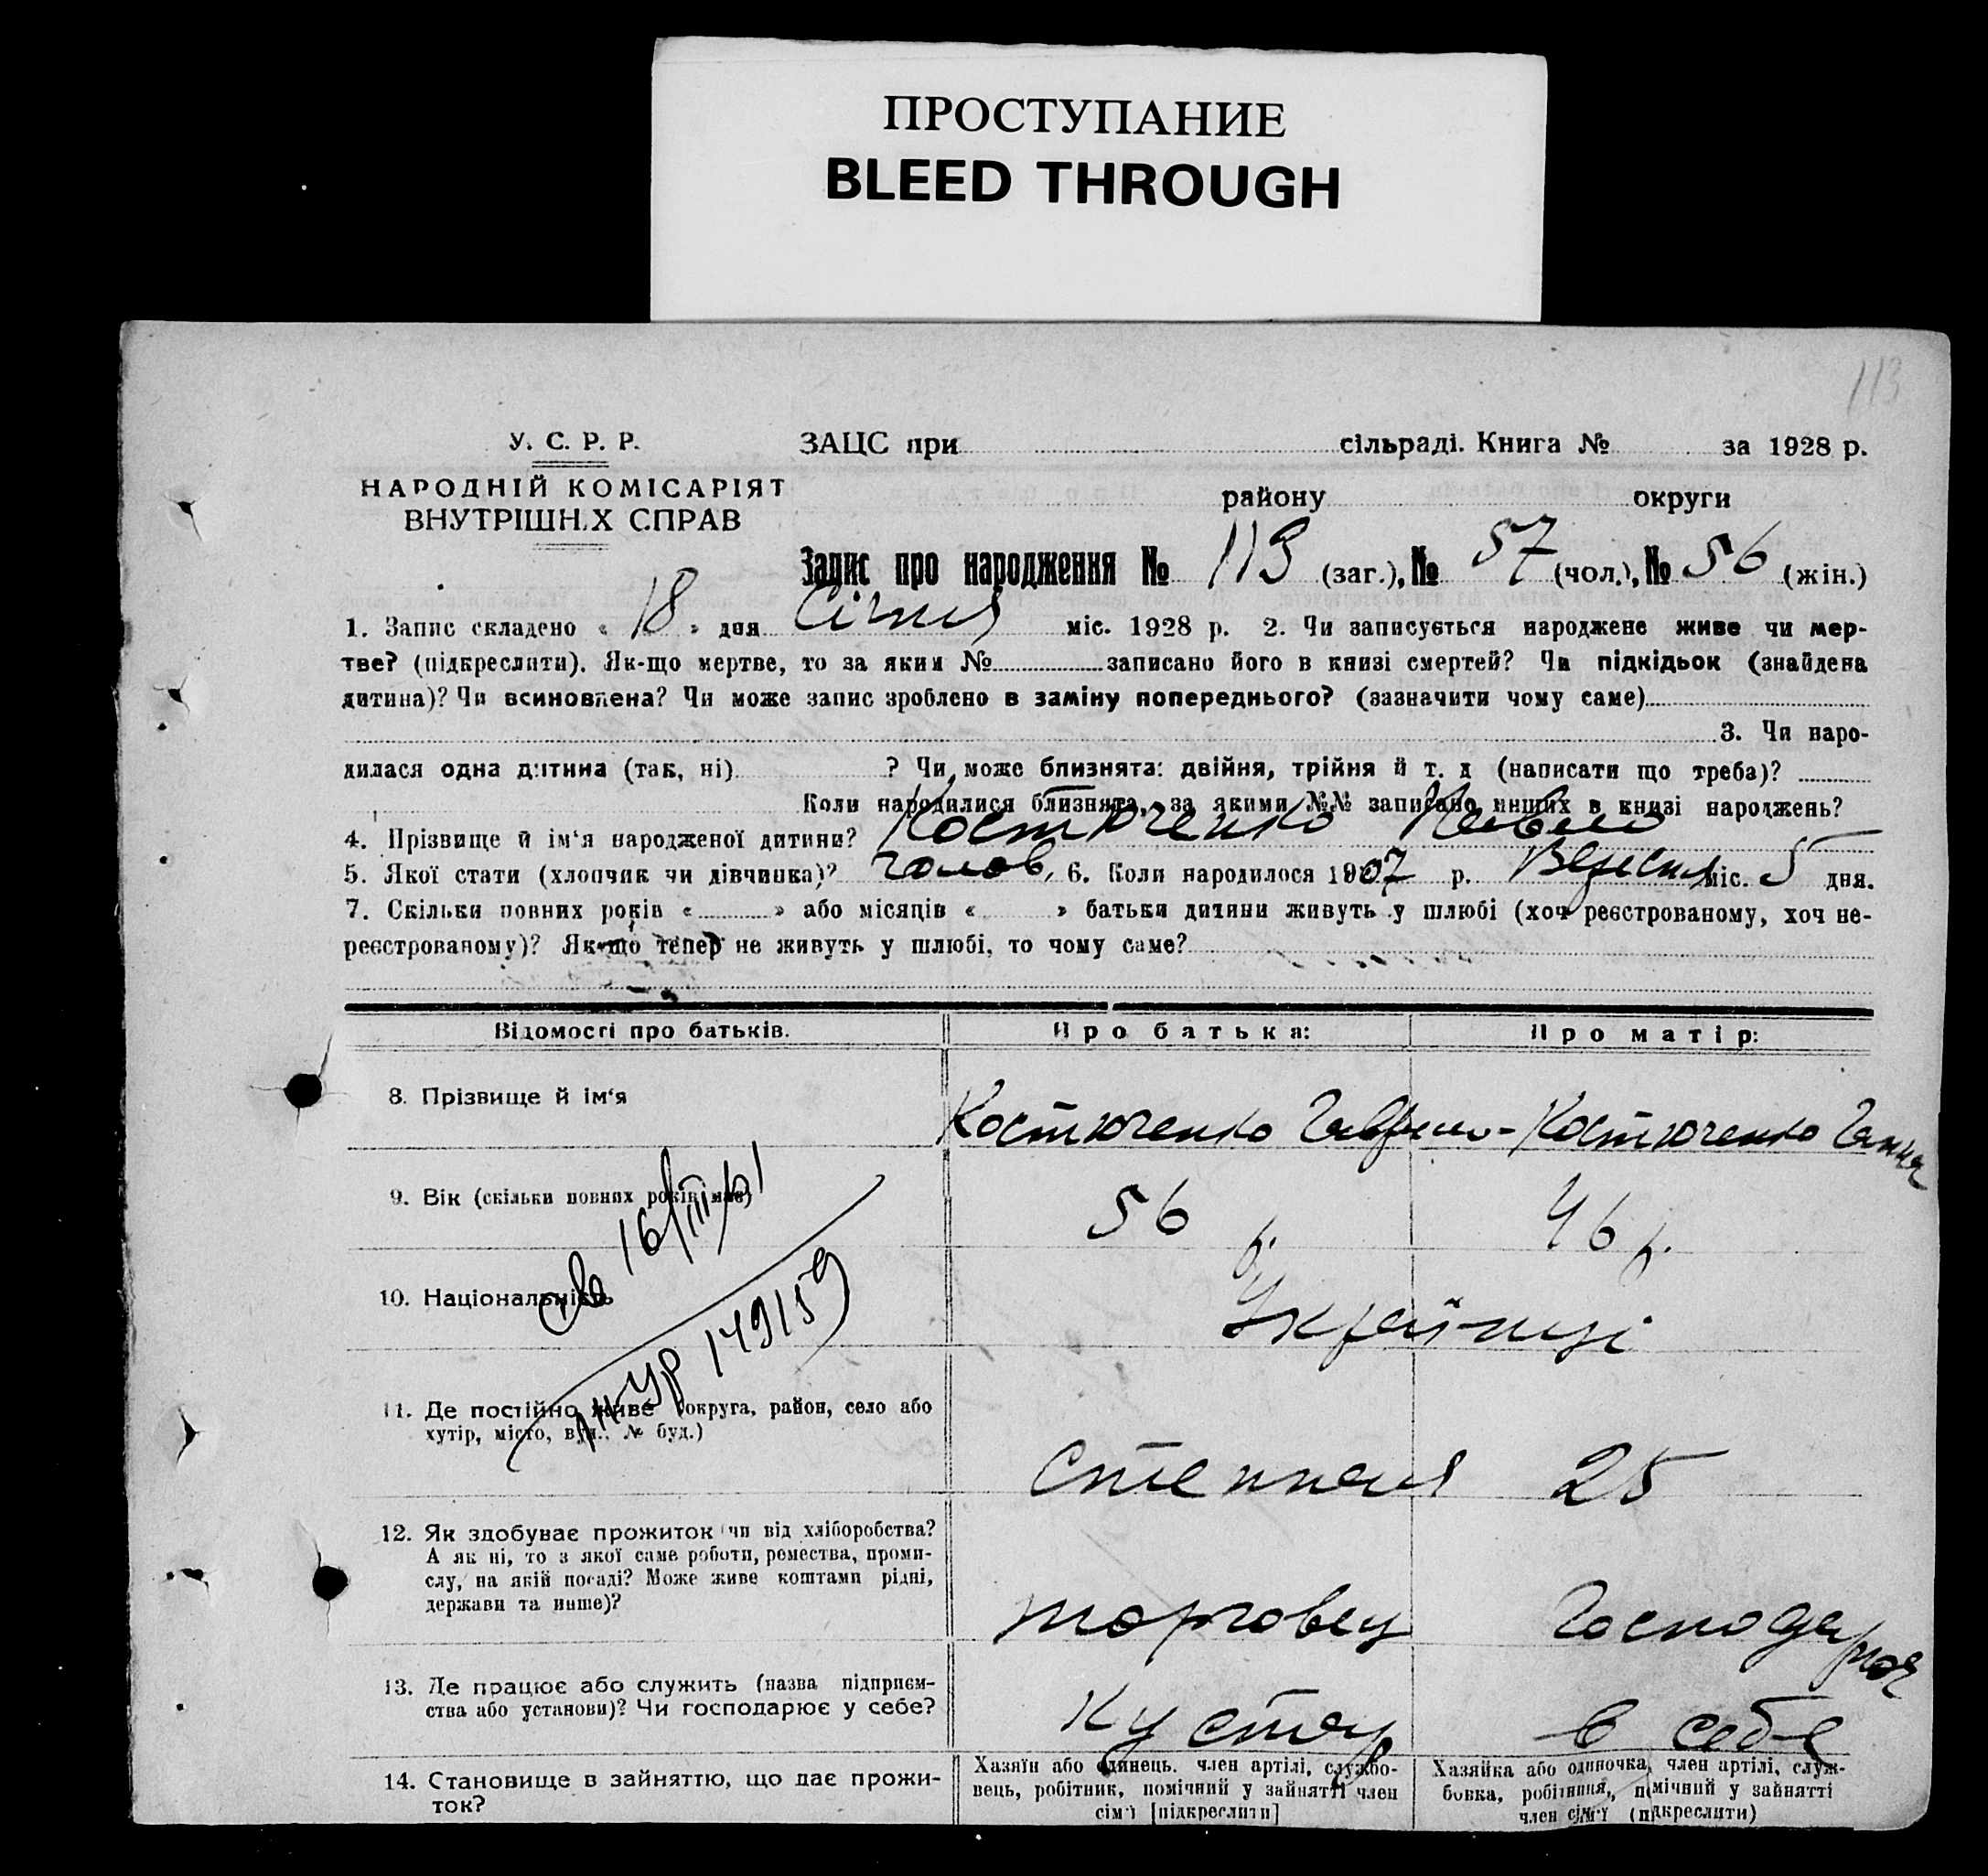 ПРОСТУПАНИЕ
BLEED THROUGH
113
У. С. Р. Р.
НАРОДНІЙ КОМІСАРІЯТ
ВНУТРІШНІХ СПРАВ
ЗАЦС при сільраді. Книга № за 1928 р.
району округи
Запис про народження № 113 (заг.), № 57 (чол.), № 56 (жін.)
1. Запис складено « 18 » дня Січня міс. 1928 р. 2. Чи записується народжене живе чи мер-
тве? (підкреслити). Як-що мертве, то за яким № записано його в книзі смертей? Чи підкідьок (знайдена
дитина)? Чи всиновлена? Чи може запис зроблено в заміну попереднього? (зазначити чому саме)
3. Чи наро-
дилася одна дитина (так, ні) ? Чи може близнята: двійня, трійня й т. д (написати що треба)?
Коли народилися близнята, за якими №№ записано инших в книзі народжень?
4. Прізвище й ім'я народженої дитини? Костюченко Павло
5. Якої стати (хлопчик чи дівчинка)? чолов. 6. Коли народилося 1907 р. Вересня міс. 5 дня.
7. Скільки повних років « » або місяців « » батьки дитини живуть у шлюбі (хоч реєстрованому, хоч не-
реєстрованому)? Як-що тепер не живуть у шлюбі, то чому саме?
Відомості про батьків. Про батька: Про матір:
8. Прізвище й ім'я Костюченко Гаврило - Костюченко Ганна
9. Вік (скільки повних років має) 56 р. 46 р.
16/III/61
10. Національність Українці
149159
11. Де постійно живе (округа, район, село або
хутір, місто, вул., № буд.)
Степная 25
12. Як здобуває прожиток (чи від хліборобства?
А як ні, то з якої саме роботи, ремества, проми-
слу, на якій посаді? Може живе коштами рідні,
держави та инше)?
торговец Господарка
13. Де працює або служить (назва підприєм-
ства або установи)? Чи господарює у себе?
в себе
14. Становище в зайняттю, що дає прожи-
ток?
Хазяїн або одинець, член артілі, службо-
вець, робітник, помічний у зайнятті член
сім'ї [підкреслити]
Хазяйка або одиночка, член артілі, служ-
бовка, робітниця, помічний у зайнятті
член сім'ї (підкреслити)